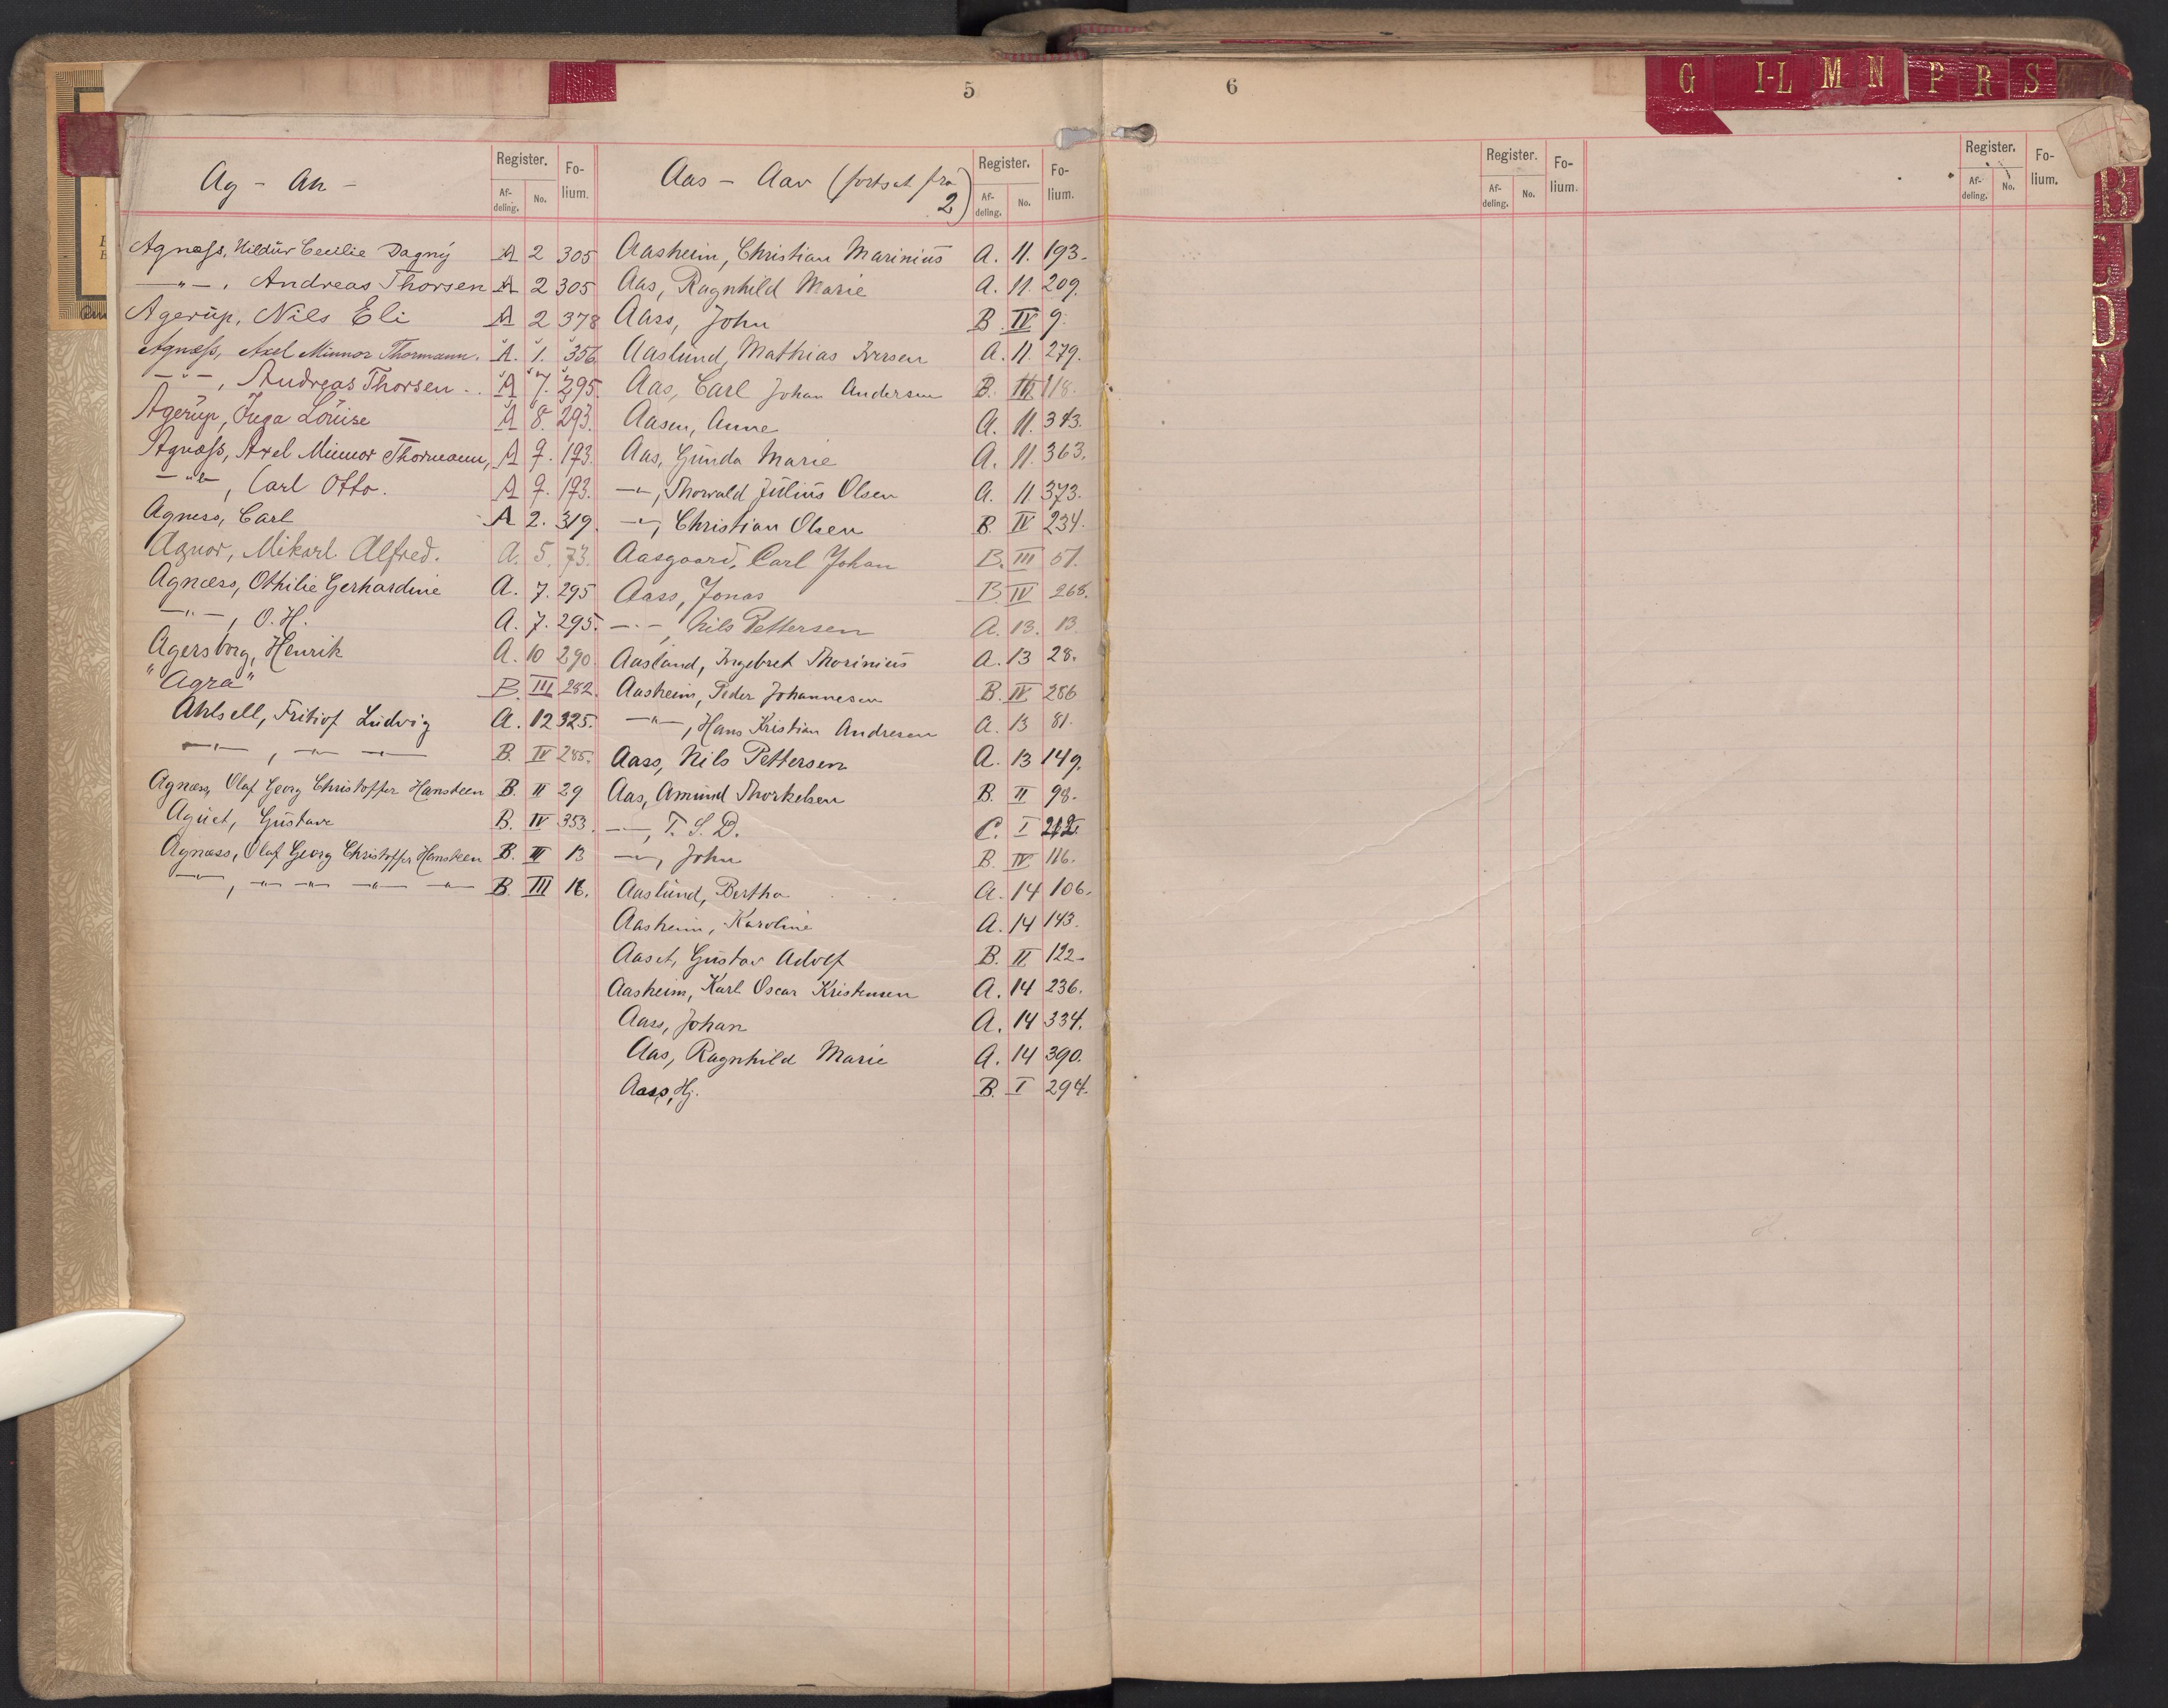 5
Ag - Ah -
Register.
Af-
deling.
No.
Fo-
lium.
Agnæss, Hildur Cecilie Dagny A 2 305
-"-, Andreas Thorsen A 2 305
Agerup, Nils Eli A 2 378
Agnæss, Axel Minnor Thormann. A. 1. 356.
-"-, Andreas Thorsen.. A 7. 295.
Agerup, Inga Louise A 8. 293.
Agnæss, Axel Minnor Thormann, A 9. 193.
-"-, Carl Otto. A 9. 193.
Agness, Carl A 2. 319.
Agnor, Mikael Alfred. A. 5. 73.
Agnæss, Othilie Gerhardine A. 7. 295
-"-, O. H. A. 7. 295.
Agersborg, Henrik A. 10 290
"Agra" B. III 282.
Ahlsell, Fritiof Ludvig A. 12 325.
-"-, -"- -"- B. IV 285.
Agnæss, Olaf Georg Christoffer Hansteen B. II 29
Aguet, Gustave B. IV 353.
Agnæss, Olaf Georg Christoffer Hansteen B. III 13
-"-, -"- -"- -"- -"- B. III 16.
Aas - Aav (fortsat fra 2)
Register.
Af-
deling.
No.
Fo-
lium.
Aasheim, Christian Marinius A. 11. 193.
Aas, Ragnhild Marie A. 11. 209.
Aass, John B. IV 9.
Aaslund, Mathias Iversen A. 11. 279.
Aas, Carl Johan Andersen B. III 118.
Aasen, Anne A. 11. 343.
Aas, Gunda Marie A. 11. 363.
-"-, Thorvald Julius Olsen A. 11 373.
-"-, Christian Olsen B. IV 234.
Aasgaard, Carl Johan B. III 51.
Aass, Jonas B. IV 268.
-"-, Nils Pettersen A. 13. 13.
Aasland, Ingebret Thorinius A. 13 28.
Aasheim, Peder Johannesen B. IV 286
-"-, Hans Kristian Andresen A. 13 81.
Aass, Nils Pettersen A. 13 149.
Aas, Amund Thorkelsen B. II 98.
-"-, T. S. D. C. I 212.
-"-, John B. IV 116.
Aaslund, Bertha A. 14 106.
Aasheim, Karoline A. 14 143.
Aaset, Gustav Adolf B. II 122.
Aasheim, Karl Oscar Kristensen A. 14 236.
Aass, Johan A. 14 334.
Aas, Ragnhild Marie A. 14 390.
Aass, Hj. B. I 294.
6
Register.
Af-
deling.
No.
Fo-
lium.
Register.
Af-
deling.
No.
Fo-
lium.
G I-L M-N P R S
B
D